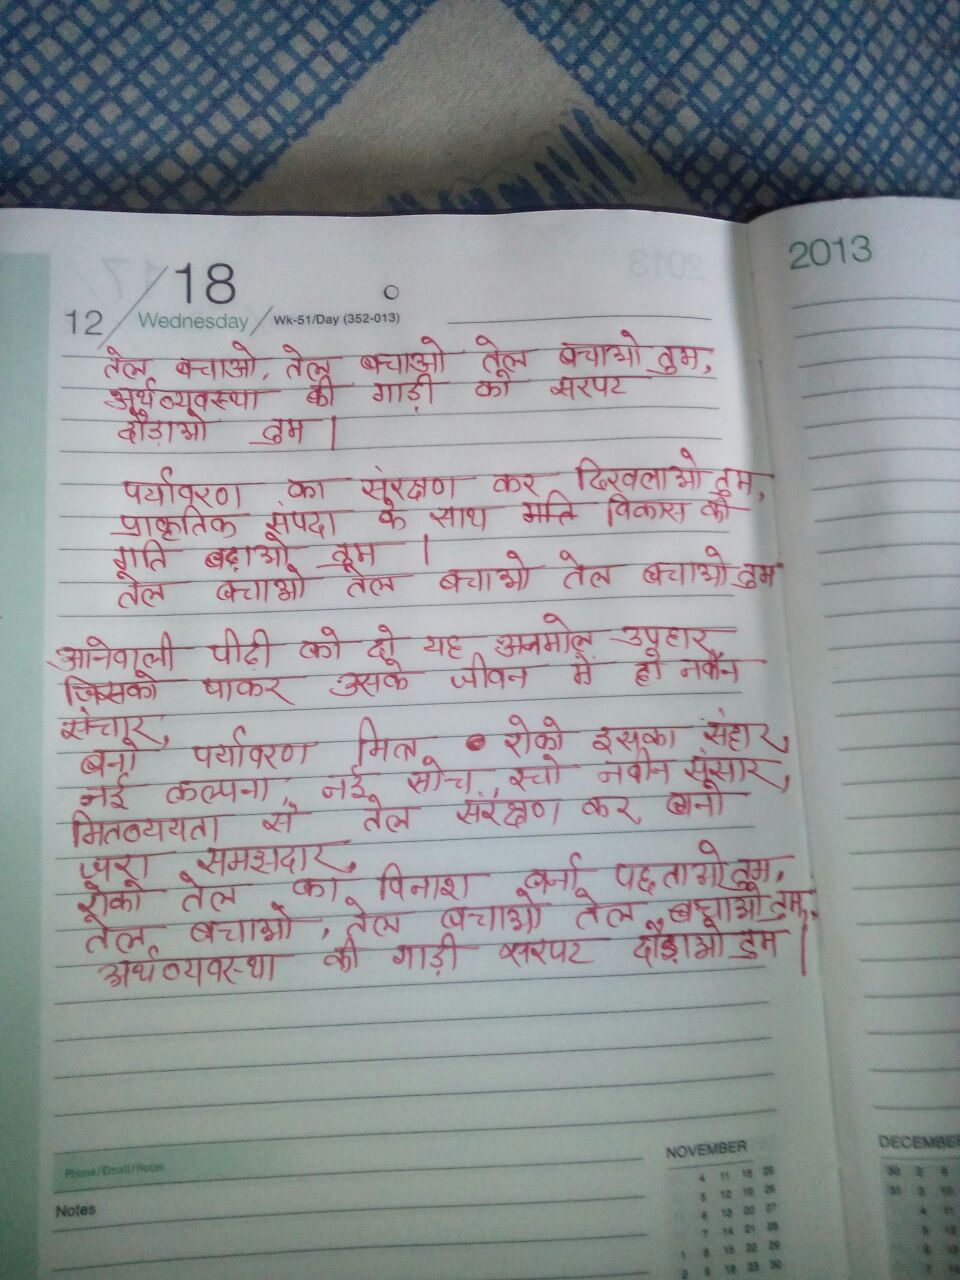 2013
12/18
Wednesday / Wk-51/Day (352-013)
तेल बचाओ, तेल बचाओ तेल बचाओ तुम,
अर्थव्यवस्था की गाड़ी को सरपट
दौड़ाओ तुम |
पर्यावरण का संरक्षण कर दिखलाओ तुम,
प्राकृतिक संपदा के साथ मति विकास की
गति बढ़ाओ तुम |
तेल बचाओ तेल बचाओ तेल बचाओ तुम
आनेवाली पीढ़ी को दो यह अनमोल उपहार
जिसको पाकर उसके जीवन में हो नवीन
संचार,
बनो पर्यावरण मित्र रोको इसका संहार,
नई कल्पना, नई सोच, रचो नवीन संसार,
मितव्ययता से तेल संरक्षण कर बनो
ज़रा समझदार,
रोको तेल का विनाश वर्ना पछताओ तुम,
तेल बचाओ, तेल बचाओ तेल बचाओ तुम,
अर्थव्यवस्था की गाड़ी सरपट दौड़ाओ तुम |
Phone/Email/Notes
Notes
NOVEMBER
4 11 18 25
5 12 19 26
6 13 20 27
7 14 21 28
1 8 15 22 29
2 9 16 23 30
DECEMBER